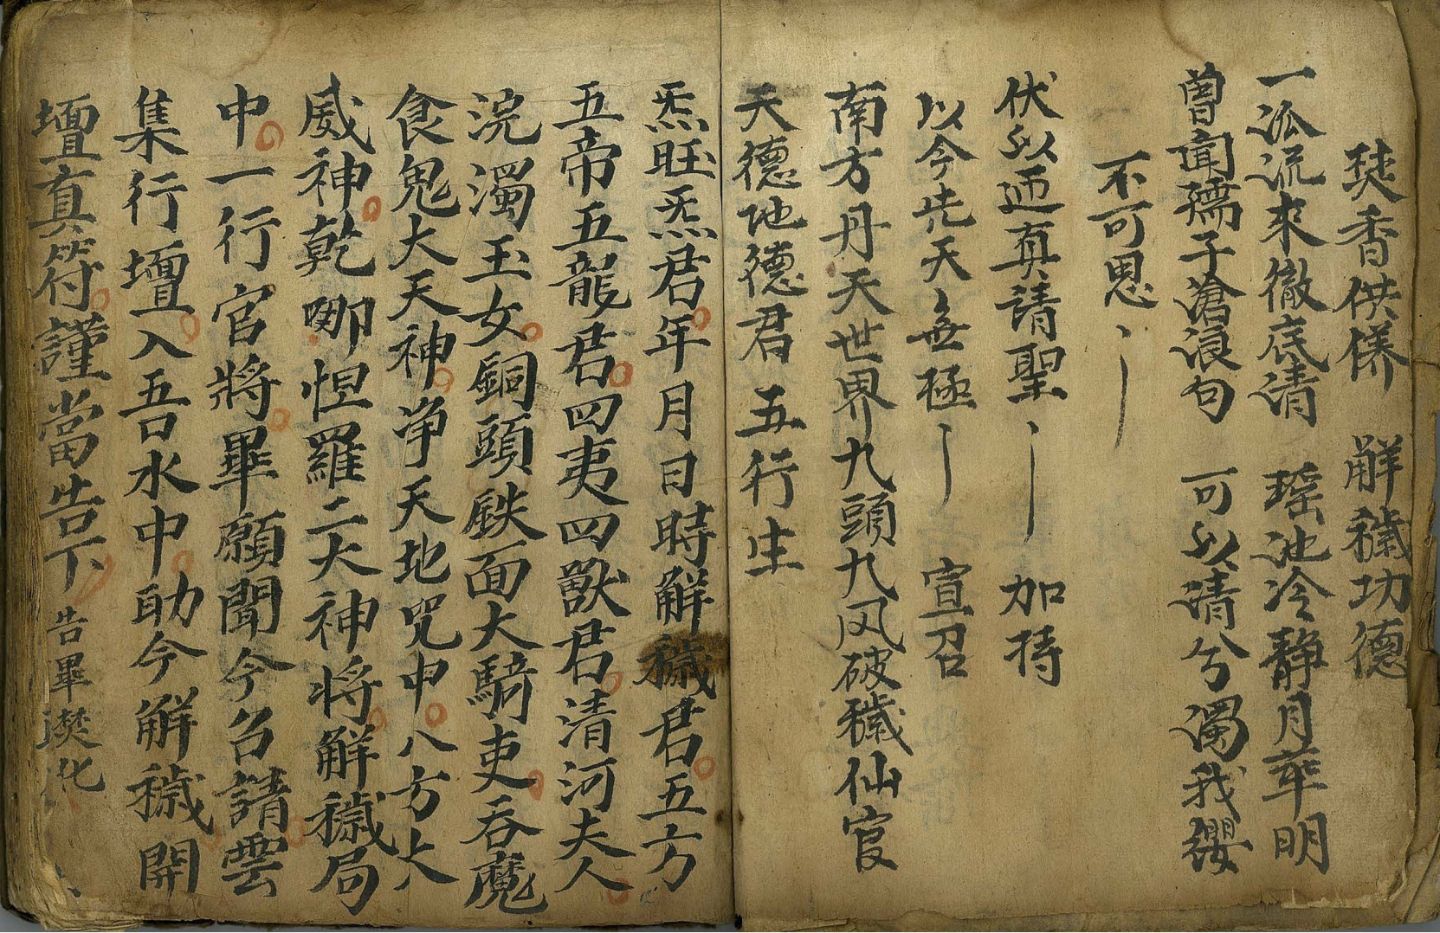 焚香供养 解穢功德
一派流來徹底清 瑶池冷靜月華明
曾聞孺子滄浪句 可以清兮濁我纓
不可思丶丨
伏以迊真請聖丶丨 加持
以今先天無極丶丨 宣召
南方丹天世界九頭九凤破穢仙官
天德地德君五行生
炁旺炁君年月日時解穢君五方
五帝五龍君四夷四獸君清河夫人
浣濁玉女銅頭鉄面大騎吏吞魔
食鬼大天神净天地咒中八方大
威神乾㖿怛羅二大神将解穢局
中一行官將畢願聞今召請雲
集行壇入吾水中助今解穢開
壇真符謹當告下告畢焚化